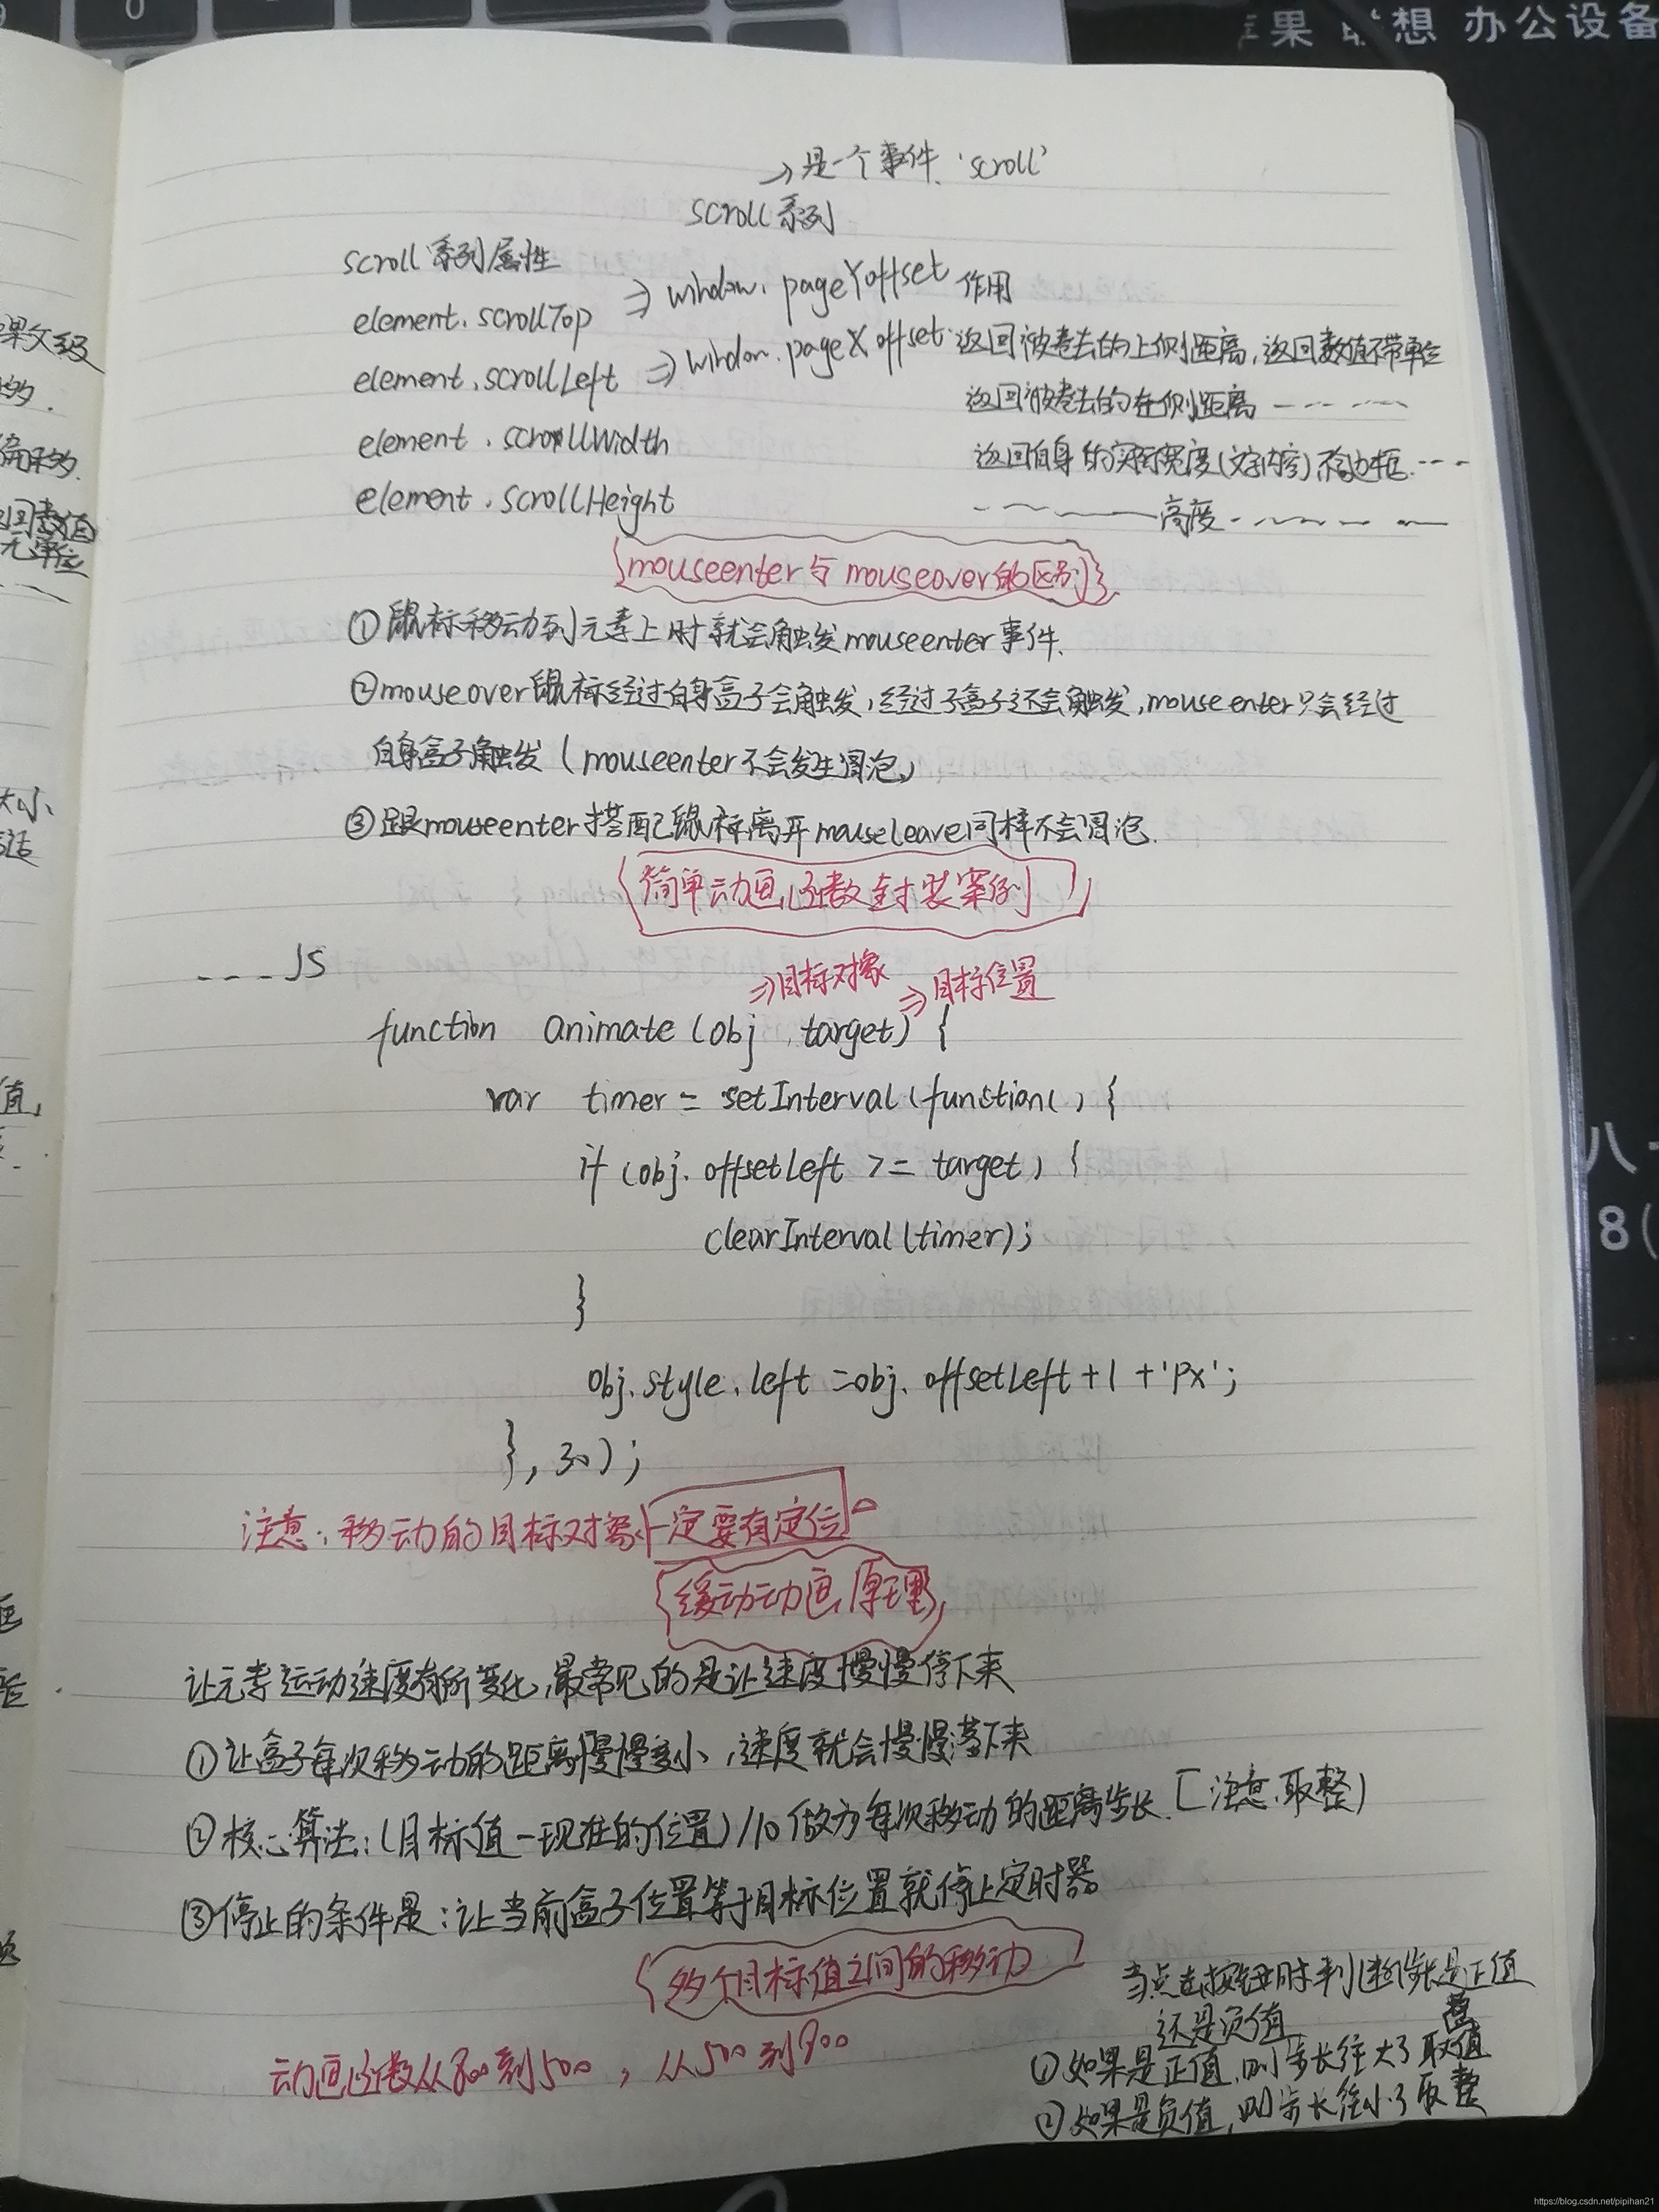 果 想 办公设备
→是一个事件.'scroll'
scroll系列
scroll系列属性
作用
element.scrollTop ⇒ window.pageYoffset
返回被卷去的上侧距离,返回数值不带单位
element.scrollLeft ⇒ window.pageXoffset
返回被卷去的左侧距离 -----
element.scrollWidth
返回自身的实际宽度(文字内容)不含边框.---
element.scrollHeight
----高度-----
mouseenter与mouseover的区别
①鼠标移动到元素上时就会触发mouseenter事件.
②mouseover鼠标经过自身盒子会触发,经过子盒子还会触发,mouseenter只会经过
自身盒子触发(mouseenter不会发生冒泡)
③跟mouseenter搭配鼠标离开mouseleave同样不会冒泡.
简单动画函数封装案例
----JS
⇒目标对象 ⇒目标位置
function animate(obj,target) {
var timer = setInterval(function() {
if (obj.offsetLeft >= target) {
clearInterval(timer);
}
obj.style.left =obj.offsetLeft+1+'px';
},30);
注意:移动的目标对象一定要有定位
缓动动画原理
让元素运动速度有所变化,最常见的是让速度慢慢停下来
①让盒子每次移动的距离慢慢变小,速度就会慢慢落下来
②核心算法:(目标值-现在的位置)/10做为每次移动的距离步长.[注意.取整)
③停止的条件是:让当前盒子位置等于目标位置就停止定时器
多个目标值之间的移动
动画函数从800到500,从500到800
当点击按钮时判断步长是正值
还是负值
①如果是正值,则步长往大了取整
②如果是负值,则步长往小了取整
果父级
的.
返回数值
无单位
大小
值,
八
8(
https://blog.csdn.net/pipihan21